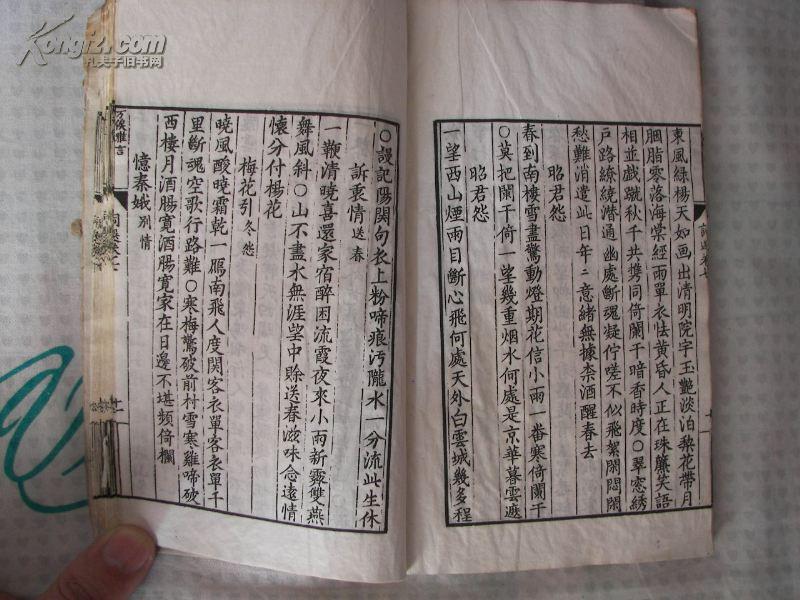 東風綠楊天如画出清明院宇玉艷淡泊梨花帶月
胭脂零落海棠經雨單衣怯黄昏人正在珠簾笑語
相並戲蹴秋千共携同倚闌干暗香時度○翠窓綉
戸路繚繞潜通幽處斷魂凝佇嗟不似飛絮閑悶閑
愁難消遣此日年〻意緒無據柰酒醒春去
昭君怨
春到南樓雪盡驚動燈期花信小雨一番寒倚闌干
○莫把闌干倚一望幾重烟水何處是京華暮雲遮
昭君怨
一望西山煙雨目斷心飛何處天外白雲城幾多程
○謾記陽関句衣上粉啼痕汚隴水一分流此生休
訴衷情送春
一鞭清曉喜還家宿醉困流霞夜來小雨新霽雙燕
舞風斜○山不盡水無涯望中賖送春滋味念遠情
懷分付楊花
梅花引冬怨
曉風酸曉霜乾一鴈南飛人度関客衣單客衣單千
里斷魂空歌行路難○寒梅驚破前村雪寒雞啼破
西樓月酒腸寛酒腸寛家在日邊不堪頻倚欄
憶秦娥別情
雅言
Kongfz.com
孔夫子旧书网